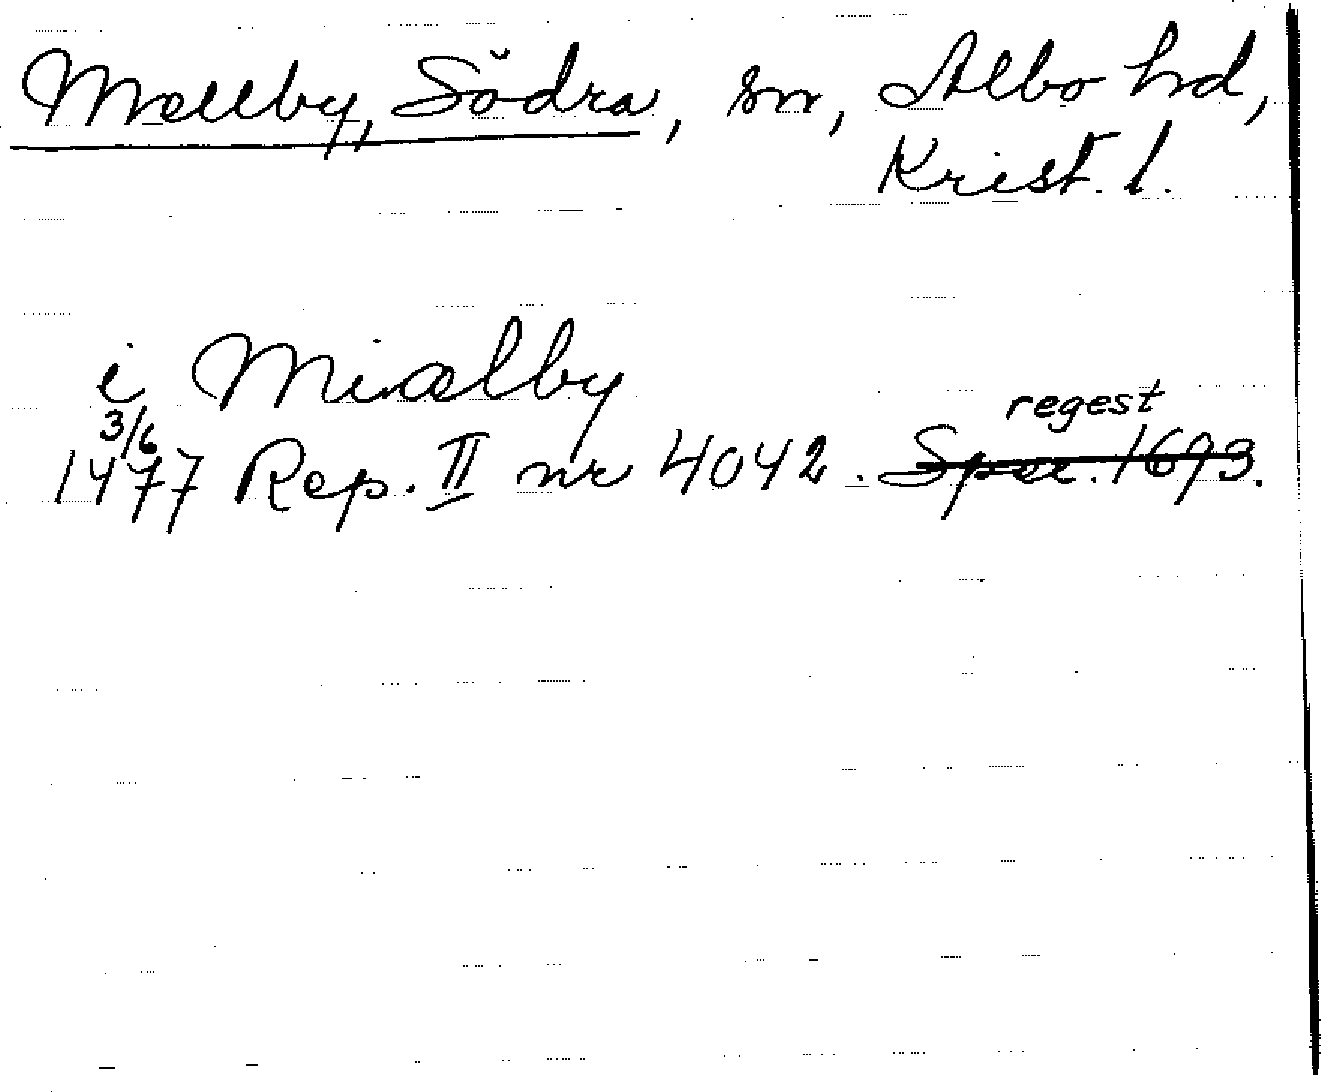 Mellby, Södra, sn, Albo hd,
Krist. l.
i Miælby
3/6
regest
1477 Rep. II nr 4042. Spec. 1693.